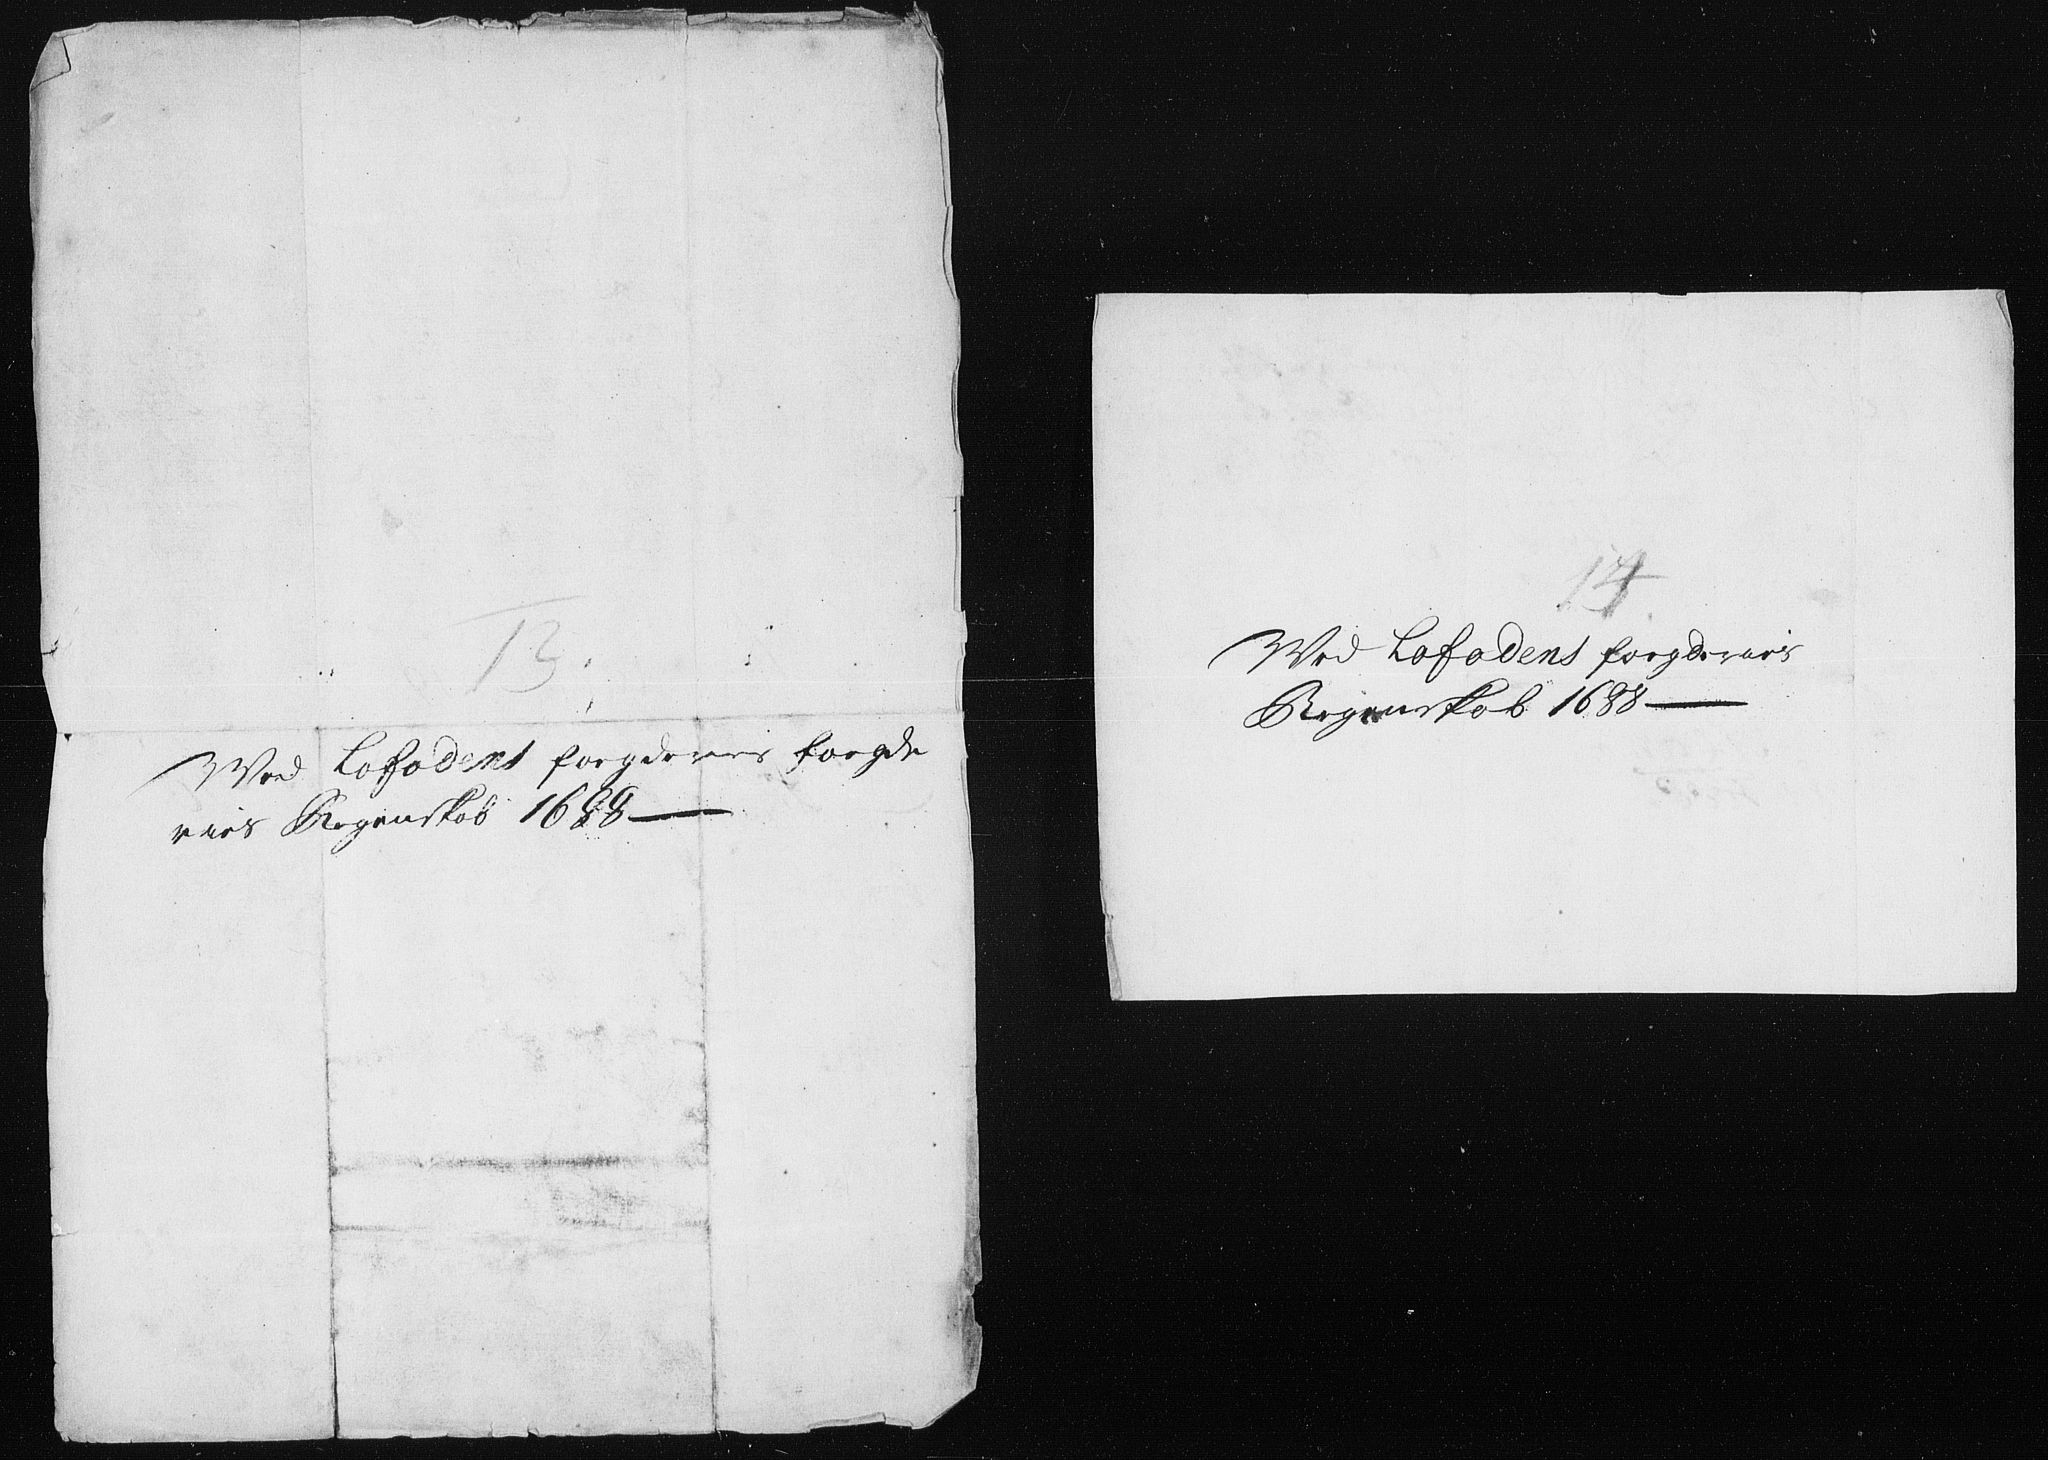 13.
Wed Lofodens foegderies foegde
ries Regenskob 1688
14.
Wed Lofodens foegderies
Regenskob 1688